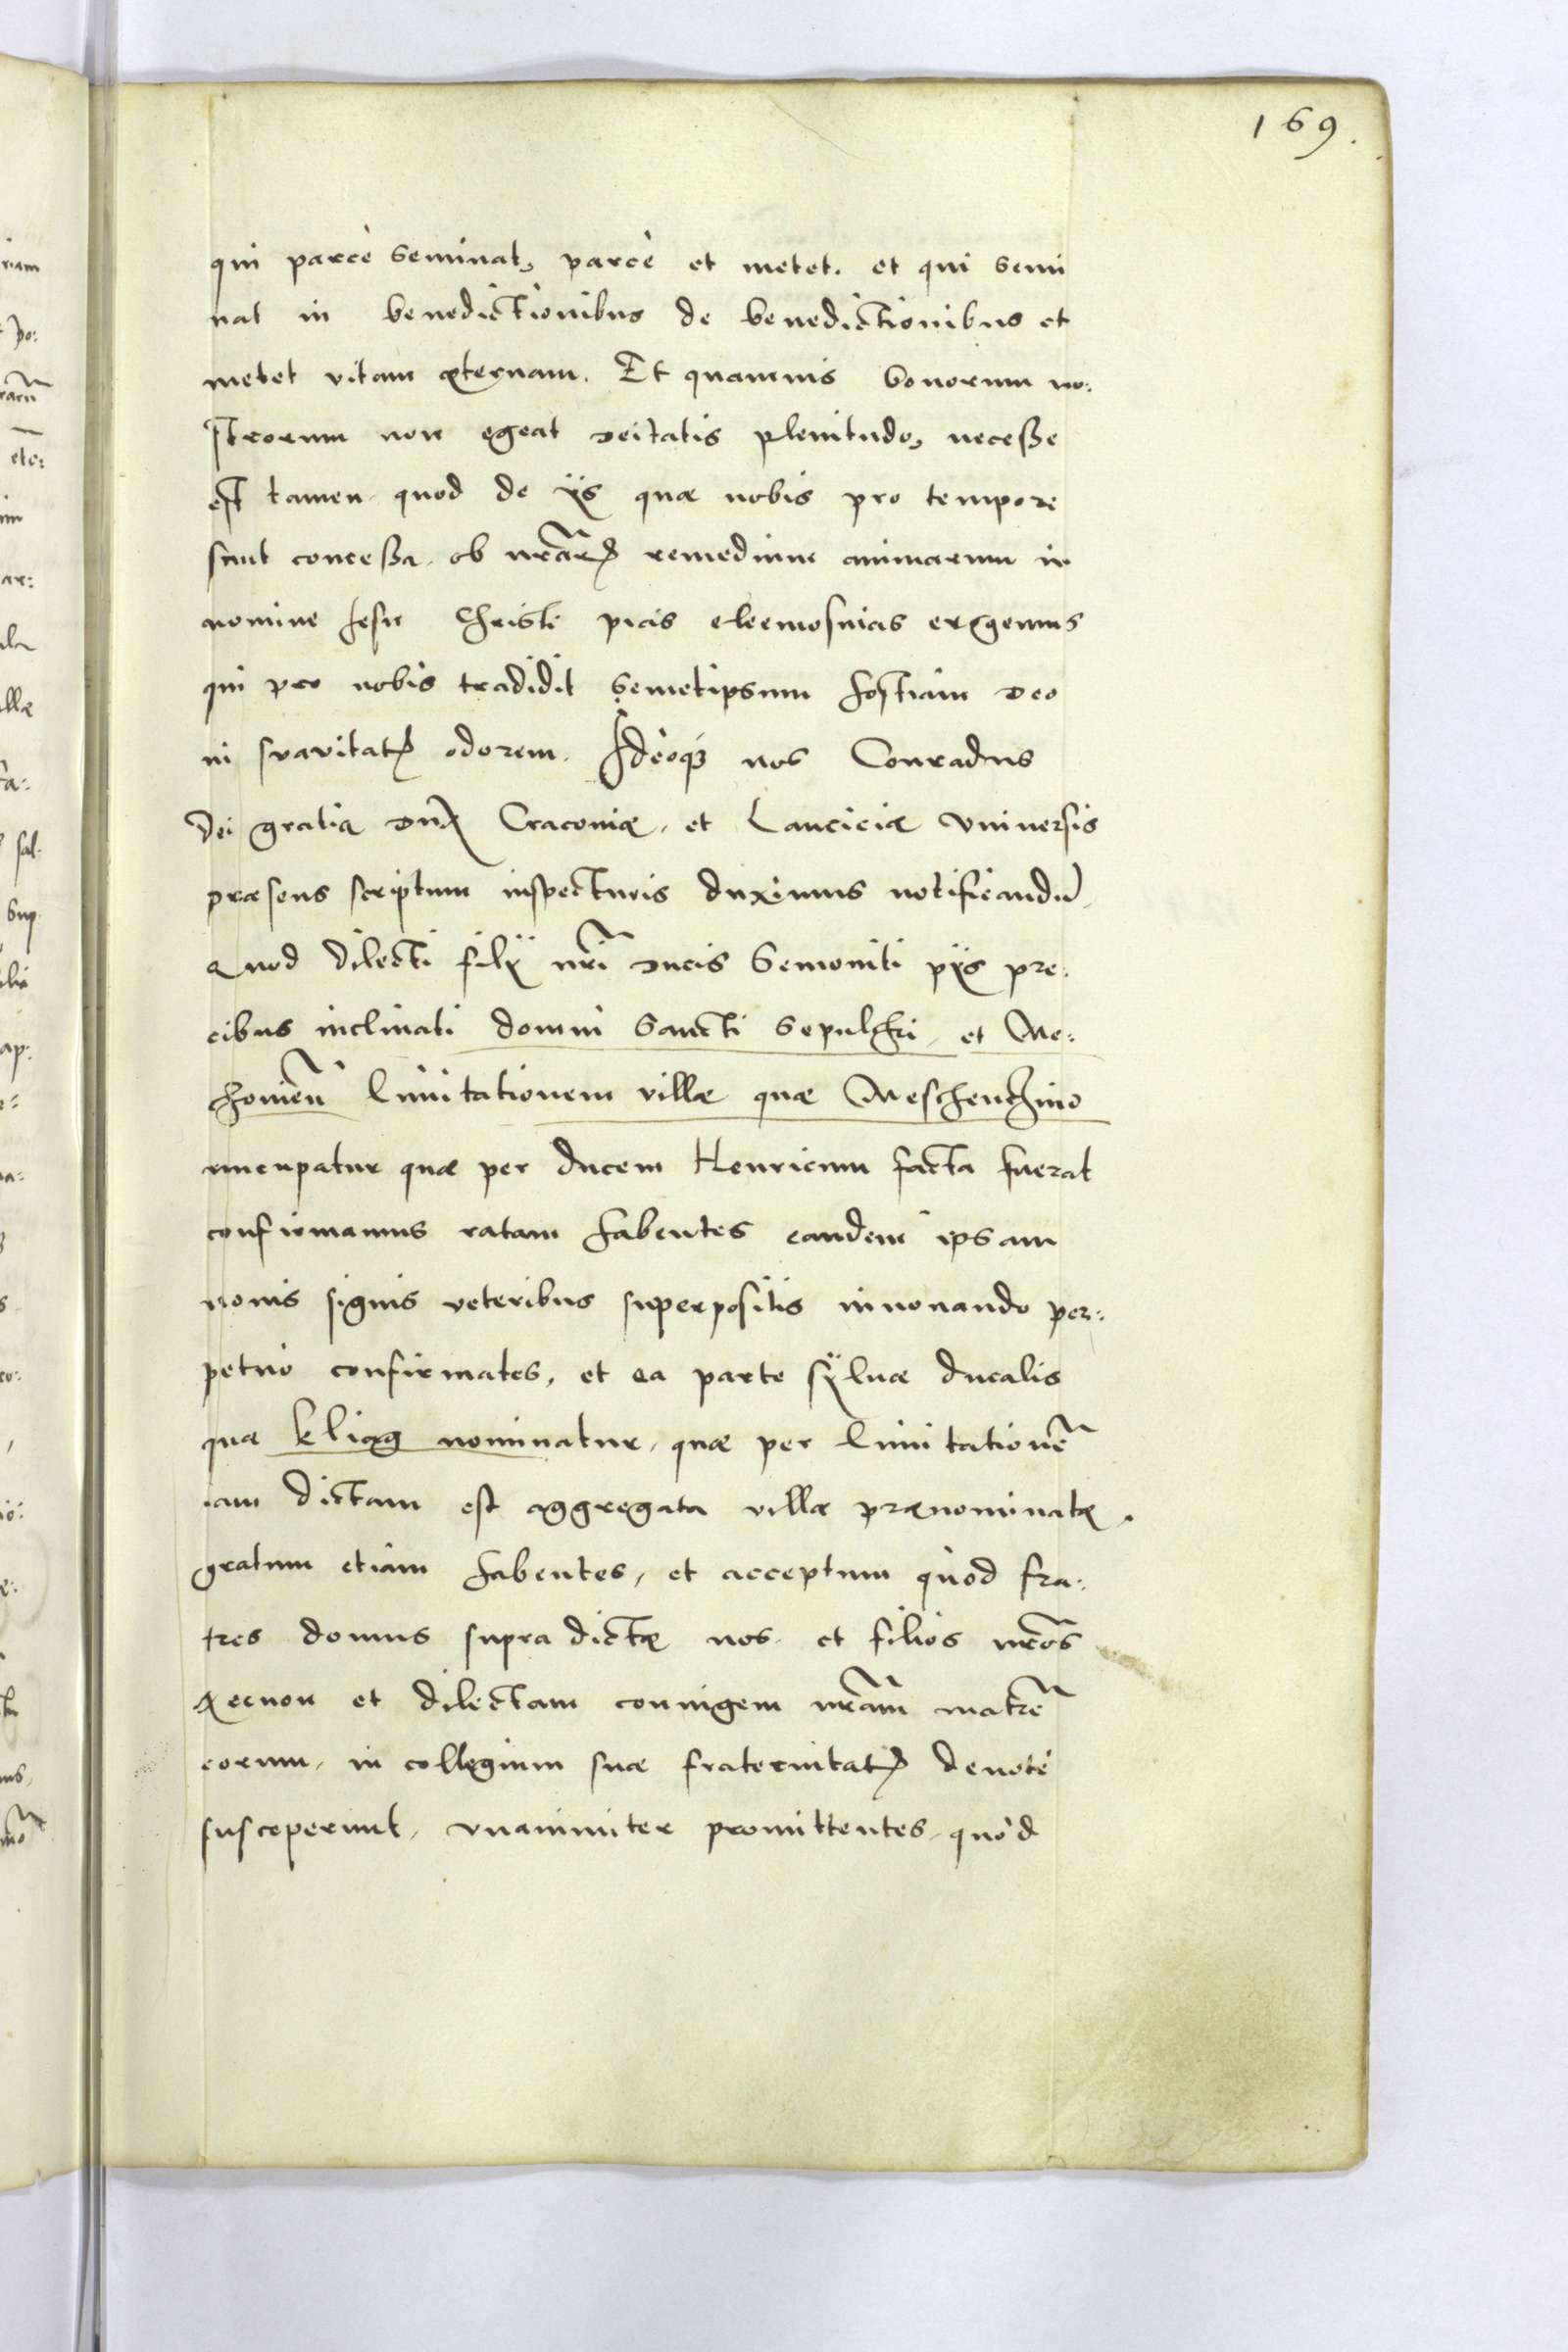 169.
qui parcè seminat, parcè et metet. et qui semi
nat in benedictionibus de benedictionibus et
metet vitam æternam. Et quamuis bonorum no:
strorum non egeat deitatis plenitudo, necesse
est tamen quod de ijs quæ nobis pro tempore
sunt concessa, ob nrãrꝝ remedium animarum in
nomine Jesu Christi piis eleemosinias erogemus
qui pro nobis tradidit semetipsum hostiam deo
in suavitatꝭ odorem. Ideoqꝫ nos Conradus
Dei gratia dux Cracoviæ, et Lanciciæ Vniversis
præsens scriptum inspecturis duximus notificandũ,
Quod dilecti filij nrĩ ducis Semoviti pijs pre:
cibus inclinati domui Sancti Sepulchri, et Me:
choviẽn limitationem villæ quæ Meschenchino
nuncupatur quæ per ducem Henricum facta fuerat
confirmamus ratam habentes eandem ipsam
novis signis veteribus superpositis innovando per:
petuò confirmates, et ea parte sÿlvæ ducalis
quæ kliag nominatur, quæ per limitationẽ
iam dictam est aggregata villæ prænominatæ.
gratum etiam habentes, et acceptum quòd fra:
tres domus supra dictæ nos et filios nrõs
Necnon et dilectam coniugem nrãm matrẽ
eorum, in collegium suæ fraternitatꝭ devotè
susceperunt, vnanimiter promittentes, quòd